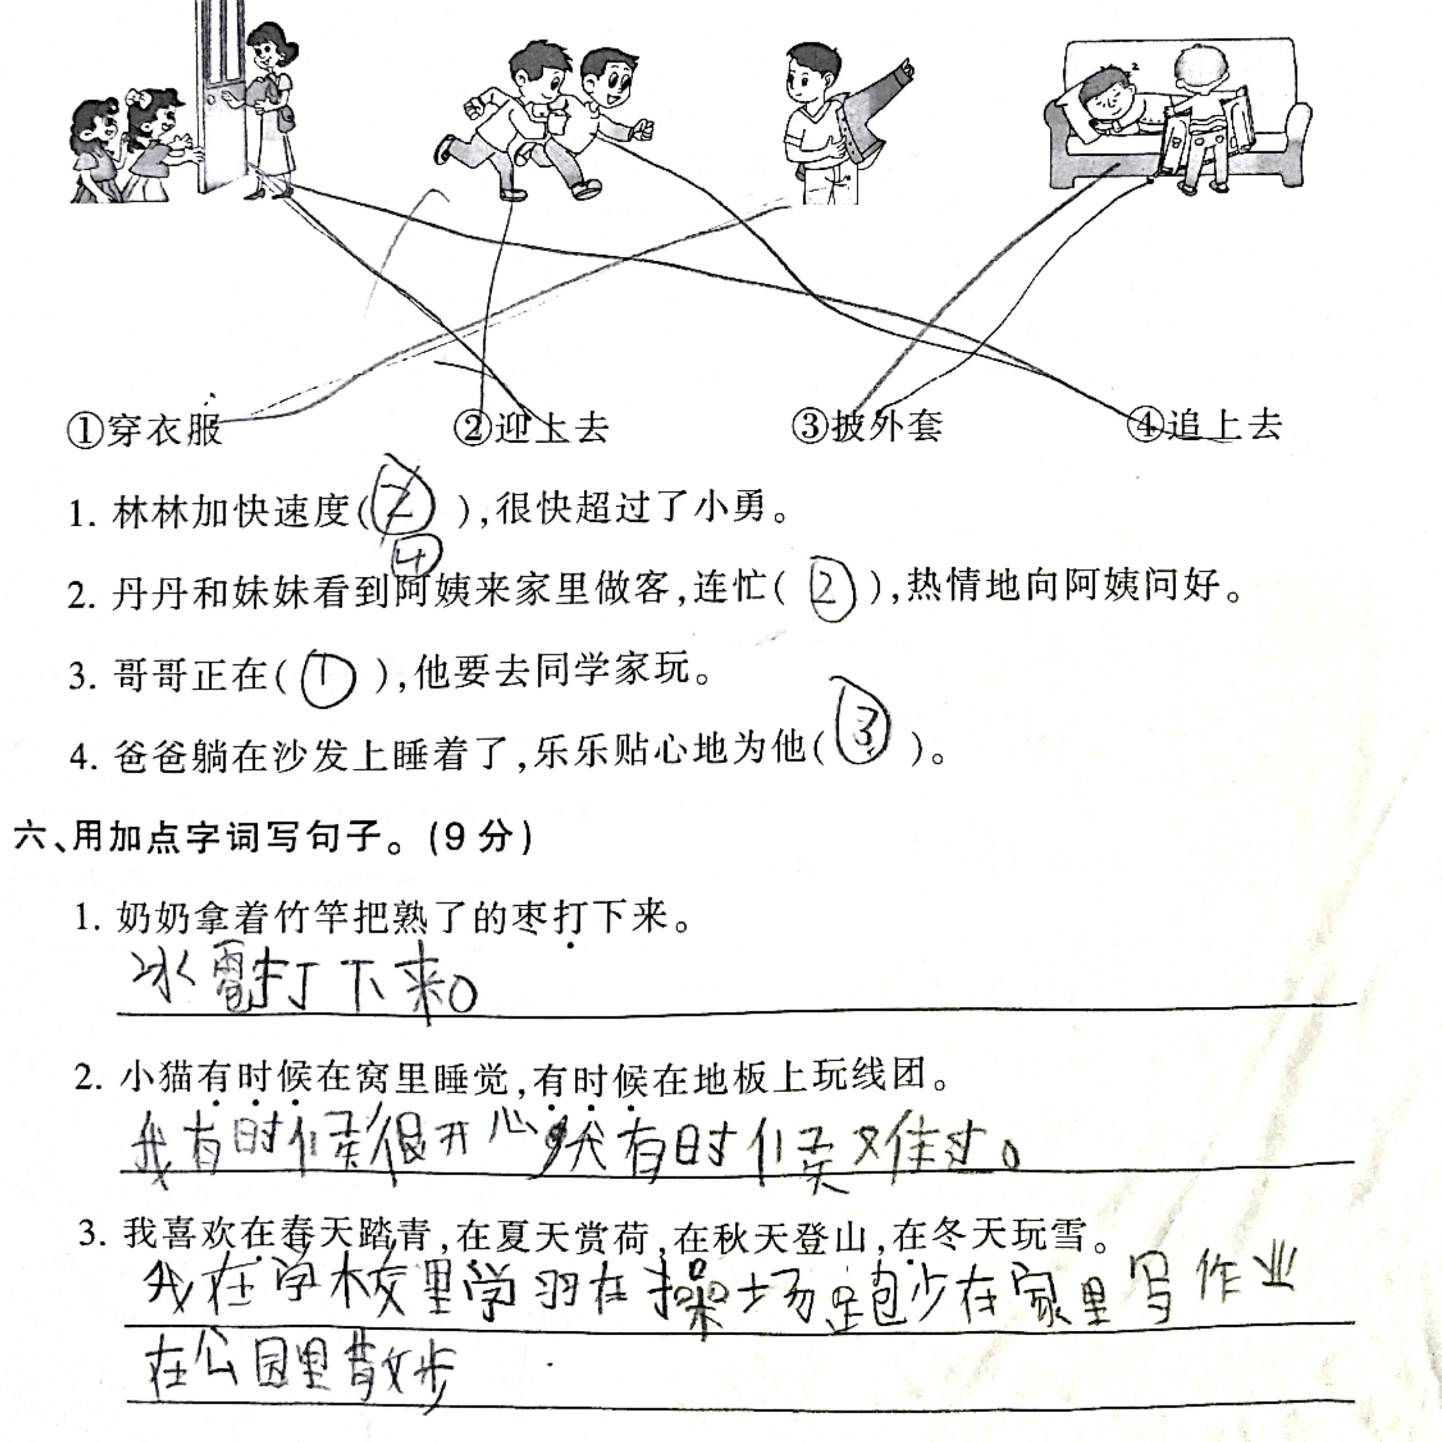 ①穿衣服 ②迎上去 ③披外套 ④追上去
1. 林林加快速度(② ),很快超过了小勇。
④
2. 丹丹和妹妹看到阿姨来家里做客,连忙( ② ),热情地向阿姨问好。
3. 哥哥正在( ① ),他要去同学家玩。
4. 爸爸躺在沙发上睡着了,乐乐贴心地为他( ③ )。
六、用加点字词写句子。(9分)
1. 奶奶拿着竹竿把熟了的枣打下来。
冰雹打下来。
2. 小猫有时候在窝里睡觉,有时候在地板上玩线团。
我有时候很开心 有时候难过。
3. 我喜欢在春天踏青,在夏天赏荷,在秋天登山,在冬天玩雪。
我在学校里学习在操场跑步在家里写作业
在公园里散步